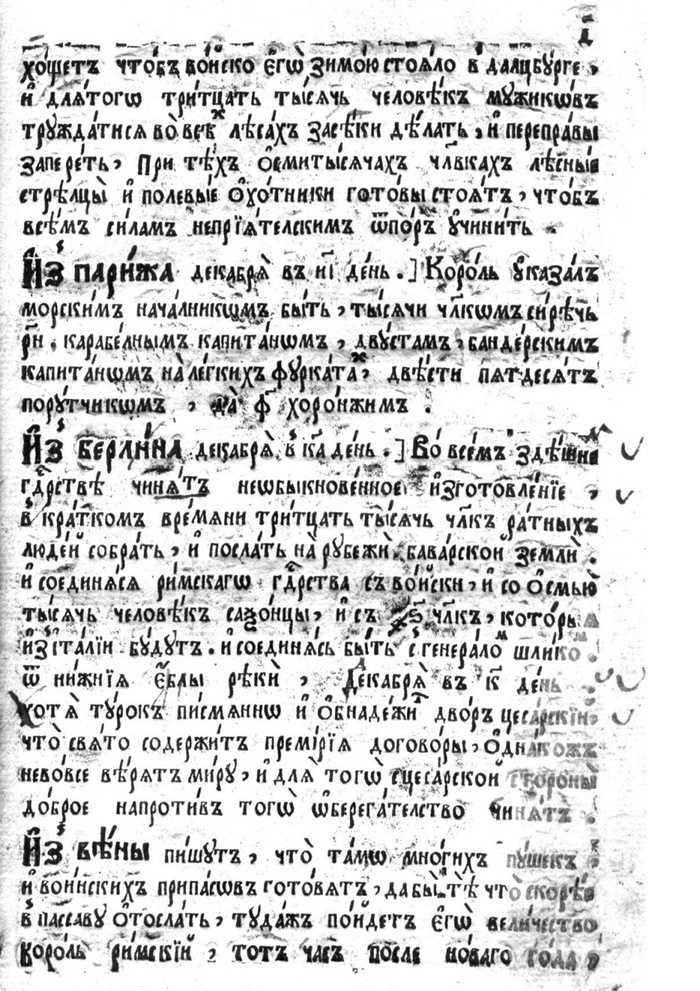 хо́щетъ что́бъ во́йско є҆гѡ̀ зимо́ю стоя́ло в да́лцбурге ,
и҆ для́тогѡ три́тцать ты́сячь человѣ́къ мужикѡ́въ
тружда́тися во̀ всѣⷯ лѣса́хъ засѣ́ки дѣ́лать , и҆ перепра́вы
запере́ть , При тѣ́хъ о҆смиты́сячахъ чл҃вкахъ лѣсны́е
стрѣлцы̀ и҆ полевы́е о҆хо́тники гото́вы стоя́тъ , что́бъ
всѣ́мъ си́ламъ непрїя́телскимъ ѿпо́ръ учини́ть .
И҆́зъ пари́жа декабря̀ въ и҃і де́нь . ] Коро́ль указа́лъ
морски́мъ нача́лникѡмъ бы́ть , ты́сячи чл҃кѡмъ си́рѣчь
р҃н . карабе́лнымъ капита́нѡмъ , двуста́мъ , банде́рскимъ
капита́нѡмъ на̀ ле́гкихъ фурка́таⷯ , двѣ́сти пятдеся́тъ
пору́тчикѡмъ , да̀ ф҃ хоро́нжимъ .
И҆́зъ берли́на декабря̀ к҃а де́нь . ] Во̀ все́мъ здѣ́шнеⷨ
гдⷭ҇рствѣ чиня́тъ неѡбыкнове́нное изготовле́нїе ,
в кра́ткомъ вре́мяни три́тцать ты́сячь чл҃къ ра́тныхъ
люде́й собра́ть , и҆ посла́ть на̀ рубежѝ бава́рской землѝ .
и҆ соединя́ся ри́мскагѡ гдⷭ҇рства съ во́йски , и҆ со о҆смью̀
ты́сячь человѣ́къ саѯо́нцы , и҆ съ чл҃къ , кото́ры
и҆зъ ста́лїи бу́дутъ . и҆ соединя́сь бы́ть с генера́лоⷨ шлико́ .
ѿ ни́жнїя є҆́лбы рѣкѝ , Декабря̀ въ к҃ де́нь
хотя̀ ту́рокъ пи́смяннѡ и҆ о҆бнаде́жиⷧ дво́ръ цеса́рскїй ,
что̀ свя́то содержи́тъ преми́рїя догово́ры , О҆дна́кожъ
нево́все вѣ́рятъ ми́ру , и҆ для̀ тогѡ̀ сцеса́рской стороны̀
до́брое напроти́въ тогѡ̀ ѡ҆берега́телство чиня́тъ .
И҆́зъ вѣ́ны пи́шутъ , что̀ та́мѡ мно́гихъ пу́шекъ
и҆ во́инскихъ припа́сѡвъ гото́вятъ , да бы̀ тѣ̀ что̀ скорѣ́е
в па́ссаву о҆тосла́ть , туда́жъ по́йдетъ є҆гѡ̀ вели́чество
коро́ль ри́мскїй , то́тъ ча́съ по́сле но́ваго го́да ,